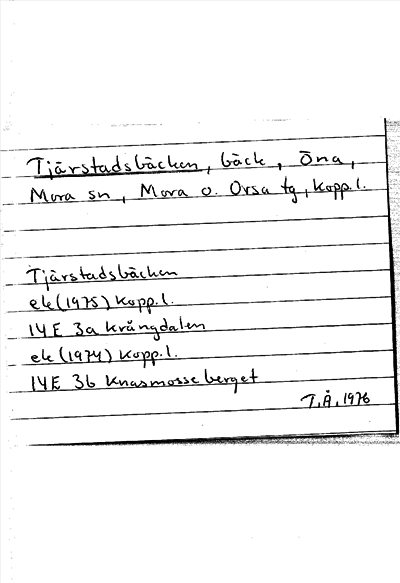 Tjärstadsbäcken, bäck, Öna,
Mora sn, Mora o. Orsa tg, Kopp.l.
Tjärstadsbäcken
ek (1975) Kopp.l.
14E 3a Krångdalen
ek (1974) Kopp.l.
14E 3b Knasmosseberget
T.Å. 1976